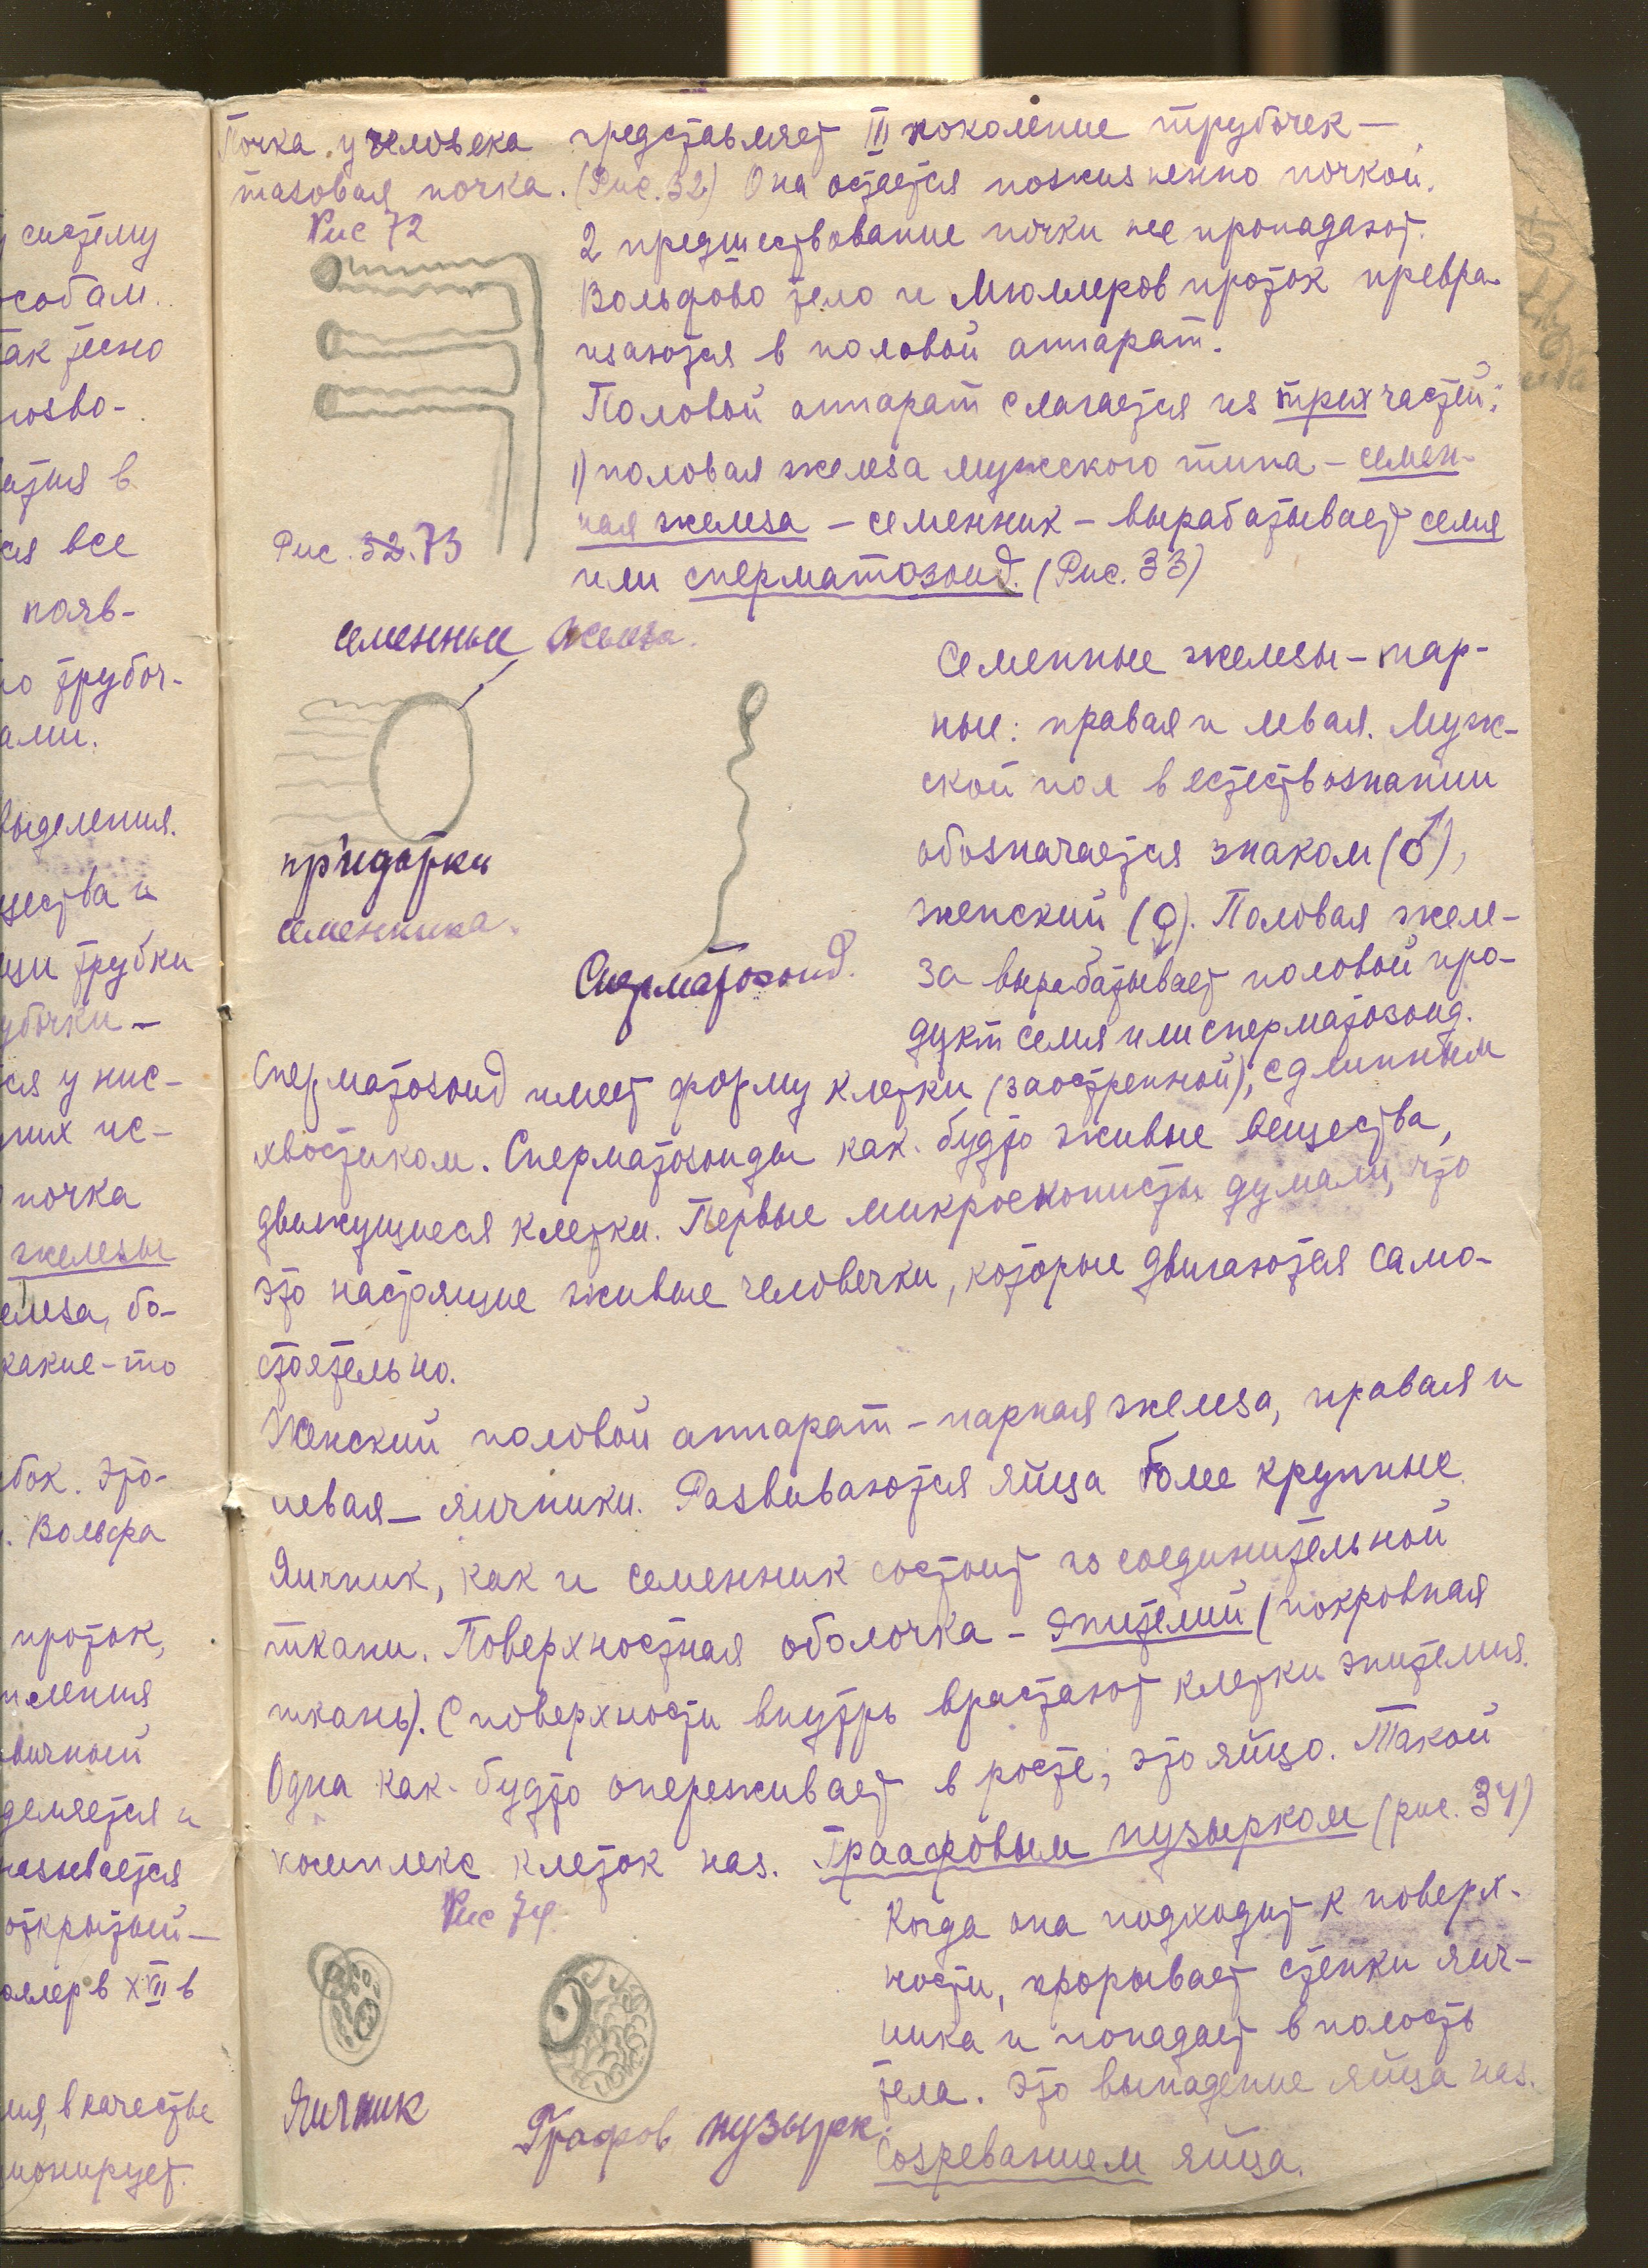 Почка у человека представляет III поколение трубочек —
тазовая почка. (Рис. 32) Она остается пожизненно почкой.
Рис 72
2 предшествование почки нее пропадают.
Вольфово тело и Мюллеров проток превра-
щаются в половой аппарат.
Половой аппарат слагается из трех частей:
1) половая железа мужского типа – семен-
ная железа – семенник – вырабатывает семя
или сперматозоид. (Рис. 33)
Рис. 32. 73
семенные железа.
придатки
семенника.
Сперматозоид.
Семенные железы – пар-
ные: правая и левая. Муж-
ской пол в естествознании
обозначается знаком (♂),
женский (♀). Половая желе-
за вырабатывает половой про-
дукт семя или сперматозоид.
Сперматозоид имеет форму клетки (заостренной), с длинным
хвостиком. Сперматозоиды как-будто живые вещества,
движущиеся клетки. Первые микроскописты думали, что
это настоящие живые человечки, которые двигаются само-
стоятельно.
Женский половой аппарат – парная железа, правая и
левая – яичники. Развиваются яйца более крупные.
Яичник, как и семенник состоит из соединительной
ткани. Поверхностная оболочка – эпителий (покровная
ткань). С поверхности внутрь врастают клетки эпителия.
Одна как-будто опереживает в росте, это яйцо. Такой
комплекс клеток наз. Граафовым пузырком (рис. 34)
Рис 74.
Яичник
Графов пузырек.
Когда она подходит к поверх-
ности, прорывает стенки яич-
ника и попадает в полость
тела. Это выпадение яйца наз.
Созреванием яйца.
систему
собам.
так тесно
позво-
ется в
ся все
появ-
то трубоч-
ами.
выделения.
щества и
щи трубки
убочки –
ся у низ-
них ис-
почка
железы
елеза, бо-
какие-то
бок. Это-
. Вольфа
проток,
вичный
деляется и
называется
открытый –
юллер в XVII в
ия, в качестве
ионирует.